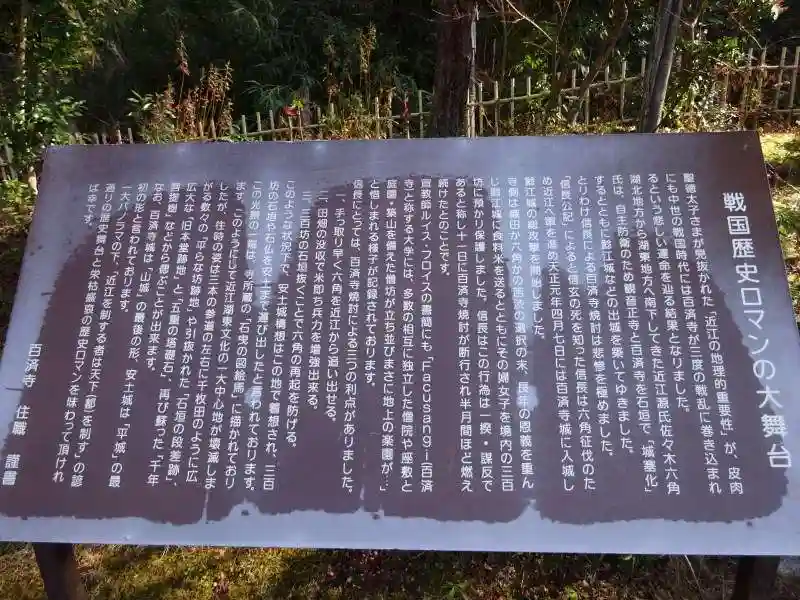 戦国歴史ロマンの大舞台
聖徳太子さまが見抜かれた「近江の地理的重要性」が、皮肉
にも中世の戦国時代には百済寺が三度の戦乱に巻き込まれ
るという悲しい運命を辿る結果となりました。
湖北地方から湖東地方へ南下してきた近江源氏佐々木六角
氏は、自主防衛のため観音正寺と百済寺を石垣で「城塞化」
するとともに鯰江城などの出城を築いてゆきました。
とりわけ信長による百済寺焼討は悲惨を極めました。
「信長公記」によると信玄の死を知った信長は六角征伐のた
め近江へ軍を進め天正元年四月七日には百済寺城に入城し
鯰江城の総攻撃を開始しました。
寺側は織田か六角かの両状の選択の末、長年の恩義を重ん
じ鯰江城に食料米を送るとともにその婦女子を境内の三百
坊に預かり保護しました。信長はこの行為は一揆・謀反で
あると称し十一日に百済寺焼討が断行され半月間ほど燃え
続けたとのことです。
宣教師ルイス・フロイスの書簡にも「Facusangi(百済
寺)と称する大学には、多数の相互に独立した僧院や座敷と
庭園・築山を備えた僧坊が立ち並びまさに地上の楽園が…」
と惜しまれる様子が記録されております。
信長にとっては、百済寺焼討による三つの利点がありました。
一、手っ取り早く六角を近江から追い出せる。
二、田畑の没収で米即ち兵力を増強出来る。
三、三百坊の石垣抜くことで六角の再起を防げる。
このような状況下で、安土城構想はこの地で着想され、三百
坊の石垣や石仏を安土まで運び出したと言われております。
この光景の一端は、寺所蔵の「石曳の図絵馬」に描かれており
ます。このようにして近江湖東文化の一大中心地が壊滅しま
したが、往時の姿は三本の参道の左右に千枚田のように広
がる数々の「平らな坊跡地」や引抜かれた「石垣の段差跡」、
広大な「旧本堂跡地」と「五重の塔礎石」、再び蘇った「千年
菩提樹」などから偲ぶことが出来ます。
なお、百済寺城は「山城」の最後の形、安土城は「平城」の最
初の形と言われております。
一大パノラマの下、「近江を制する者は天下(都)を制す」の諺
通りの歴史舞台と栄枯盛衰の歴史ロマンを味わって頂けれ
ば幸です。
百済寺 住職 謹書